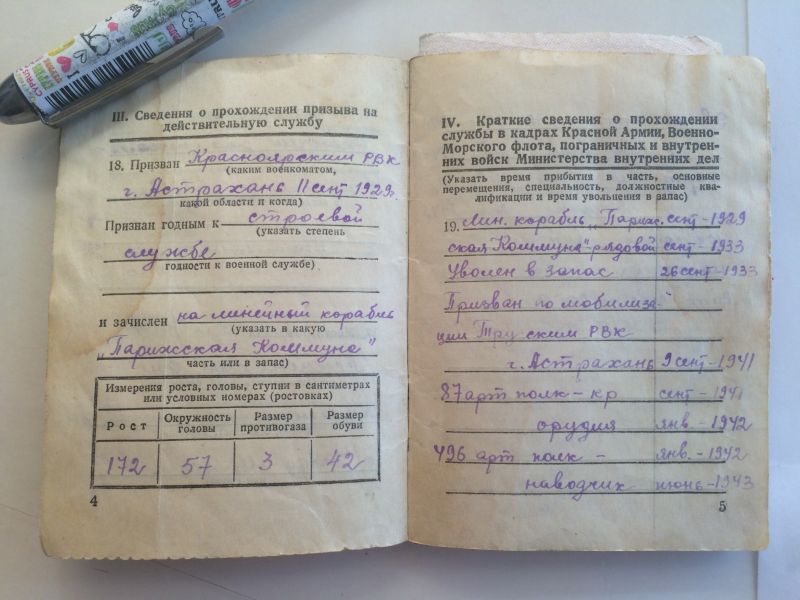 III. Сведения о прохождении призыва на
действительную службу
18. Призван Красноярским РВК
(каким военкоматом,
г. Астрахань 11 сент 1929г.
какой области и когда)
Признан годным к строевой
(указать степень
службе
годности к военной службе)
и зачислен на линейный корабль
(указать в какую
„Парижская Коммуна"
часть или в запас)
Измерения роста, головы, ступни в сантиметрах
или условных номерах (ростовках)
Рост Окружность головы Размер противогаза Размер обуви
172 57 3 42
4
IV. Краткие сведения о прохождении
службы в кадрах Красной Армии, Военно-
Морского флота, пограничных и внутрен-
них войск Министерства внутренних дел
(Указать время прибытия в часть, основные
перемещения, специальность, должностные ква-
лификации и время увольнения в запас)
19. Лин. корабль „Париж- сент-1929
ская Коммуна"-рядовой сент-1933
Уволен в запас 26 сент-1933
Призван по мобилиза-
ции РВК
г. Астрахань 9 сент-1941
87 арт полк-кр сент-1941
орудия янв.-1942
496 арт полк- янв.-1942
наводчик июнь-1943
5
CYPRUS